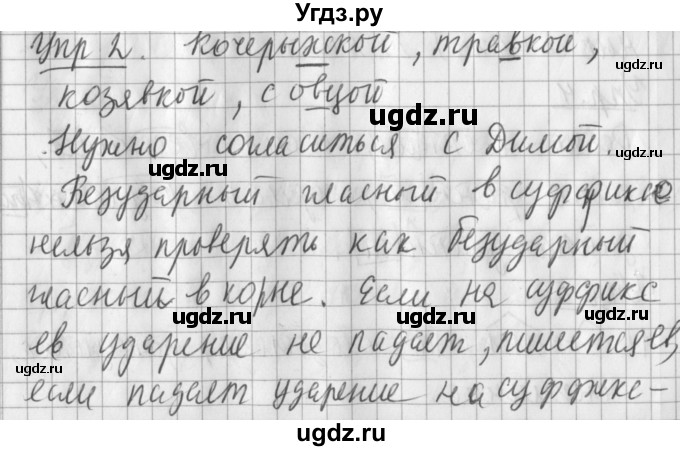 Угдз.ру
Упр 2. Кочерыжской, травкой,
козявкой, с овцой
ugdz.ru ugdz.ru
Нужно согласиться с Димой.
ugdz.ru ugdz.ru
Безударный гласный в суффиксе
нельзя проверять как безударный
гласный в корне. Если на суффикс
ugdz.ru ugdz.ru
ев ударение не падает, пишется ев,
ugdz.ru ugdz.ru
если падает ударение на суффикс-
ugdz.ru